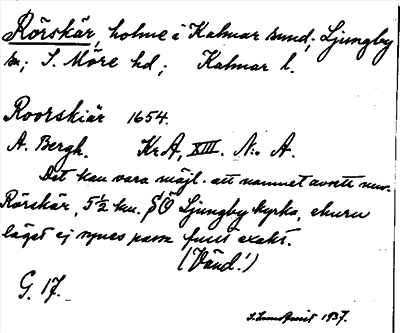 Rörskär, holme i Kalmar sund; Ljungby
sn; S. Möre hd; Kalmar l.
Roorskiär 1654.
A. Bergh. KrA, XIII. N:o A.
Det kan vara möjl. att namnet avsett nuv.
Rörskär, 5½ km. SÖ Ljungby kyrka, ehuru
läget ej synes passa fullt exakt.
(Vänd!)
G. 17.
1937.